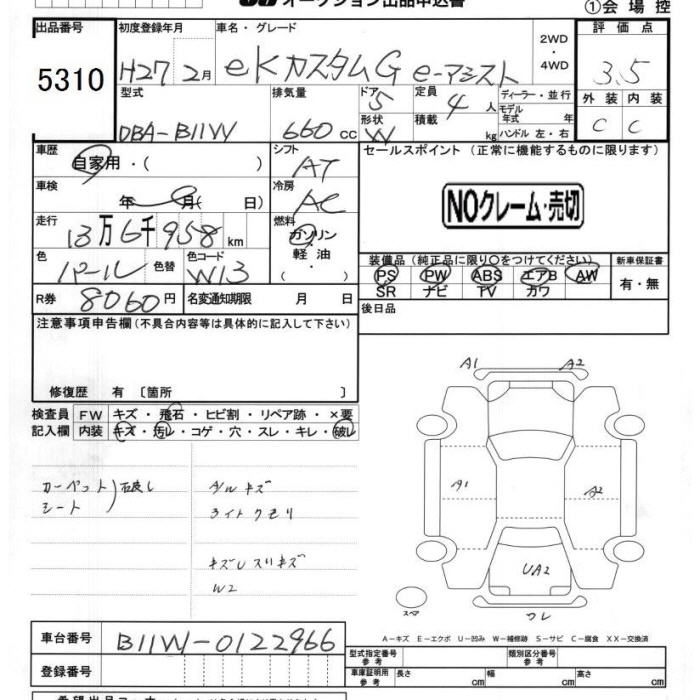 オークション出品申込書
①会場控
出品番号 初度登録年月 車名・グレード 2WD・4WD 評価点
5310 H27 2月 eKカスタムG e-アシスト 3.5
型式 排気量 ドア 5 定員 4人 ディーラー・並行 外装 内装
モデル年式 年
DBA-B11W 660cc 形状 W 積載 kg ハンドル 左・右 C C
車歴 自家用・( ) シフト AT セールスポイント (正常に機能するものに限ります)
車検 年 月( 日) 冷房 AC
NOクレーム・売切
走行 13万6千958km 燃料 ガソリン・軽油・
色 パール 色替 色コード W13
装備品 (純正品に限り○をつけてください) 新車保証書
PS PW ABS エアB AW 有・無
SR ナビ TV カワ
R券 8060円 名変通知期限 月 日 後日品
注意事項申告欄 (不具合内容等は具体的に記入して下さい)
修復歴 有 〔箇所 〕
検査員 FW キズ・飛石・ヒビ割・リペア跡・×要
記入欄 内装 キズ・汚レ・コゲ・穴・スレ・キレ・破レ
カーペット
シート
破レ
A/Wキズ
ライトクモリ
W2
A1 A2
A1 A2
UA2
スペア
A-キズ E-エクボ U-凹み W-補修跡 S-サビ C-腐食 XX-交換済
車台番号 B11W-0122966
型式指定番号 参考 類別区分番号 参考
登録番号
車庫証明用 参考 長さ cm 幅 cm 高さ cm